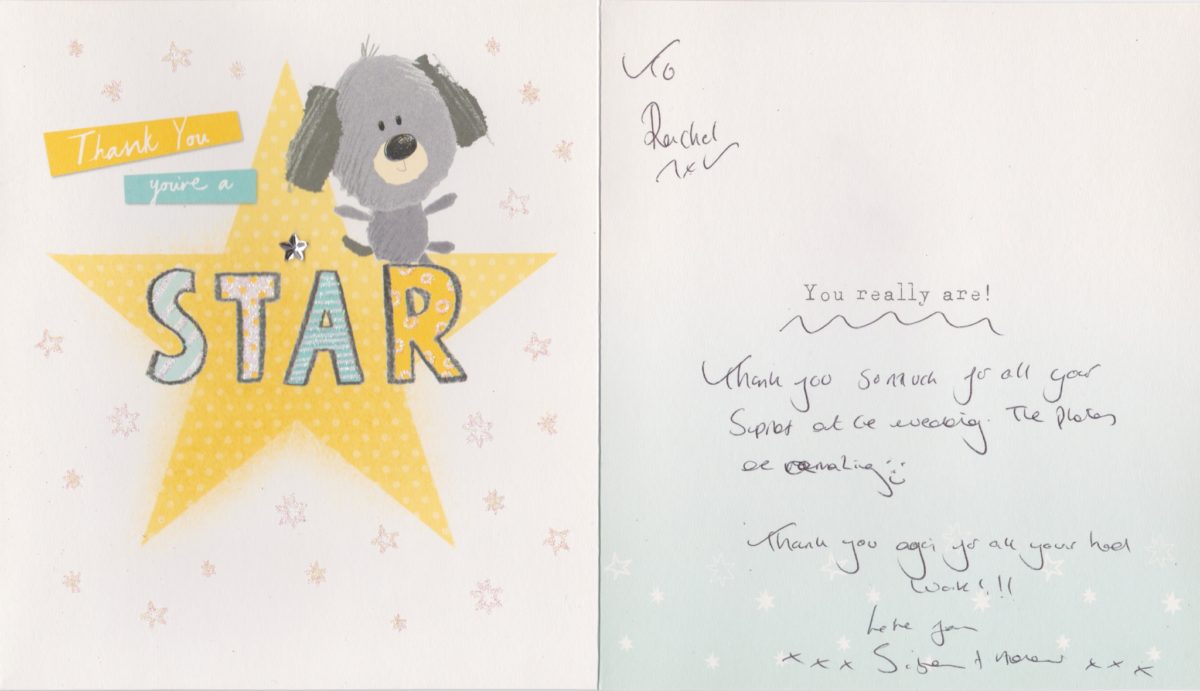 Thank You
you're a
STAR
To
Rachel
x
You really are!
Thank you so much for all your
Suprot at the wedding. The photos
are amazing :)
Thank you again for all your hard
work!!!
Love from
xxx & xxx